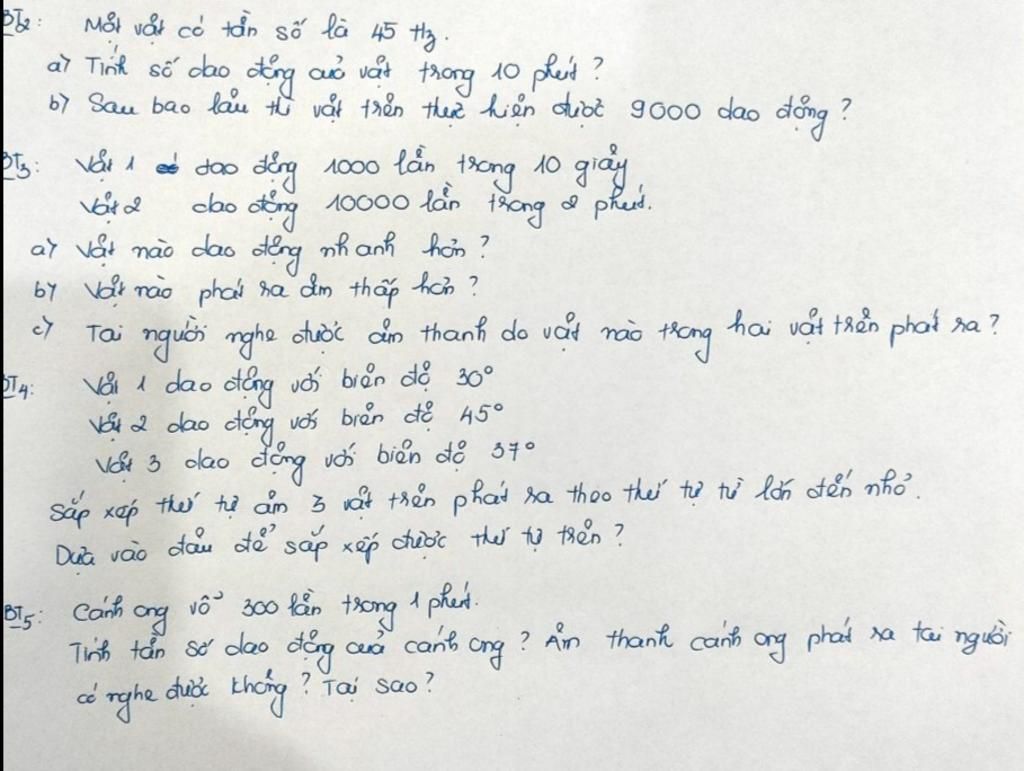 BT2: Một vật có tần số là 45 Hz.
a) Tính số dao động của vật trong 10 phút?
b) Sau bao lâu thì vật trên thực hiện được 9000 dao động?
BT3: Vật 1 dao động 1000 lần trong 10 giây
Vật 2 dao động 10000 lần trong 2 phút.
a) Vật nào dao động nhanh hơn?
b) Vật nào phát ra âm thấp hơn?
c) Tai người nghe được âm thanh do vật nào trong hai vật trên phát ra?
BT4: Vật 1 dao động với biên độ 30°
Vật 2 dao động với biên độ 45°
Vật 3 dao động với biên độ 37°
Sắp xếp thứ tự âm 3 vật trên phát ra theo thứ tự từ lớn đến nhỏ.
Dựa vào đâu để sắp xếp được thứ tự trên?
BT5: Cánh ong vỗ 300 lần trong 1 phút.
Tính tần số dao động của cánh ong? Âm thanh cánh ong phát ra tai người
có nghe được không? Tại sao?